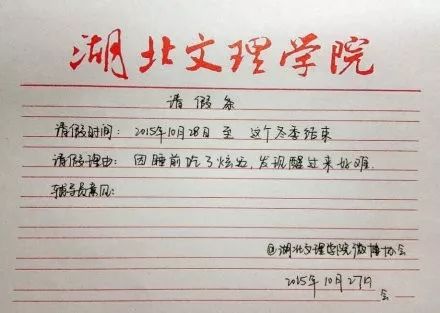 湖北文理学院
请假条
请假时间：2015年10月28日至 这个冬季结束
请假理由：因睡前吃了炫迈，发现醒过来好难.
辅导员意见：
@湖北文理学院微博协会
2015年10月27日